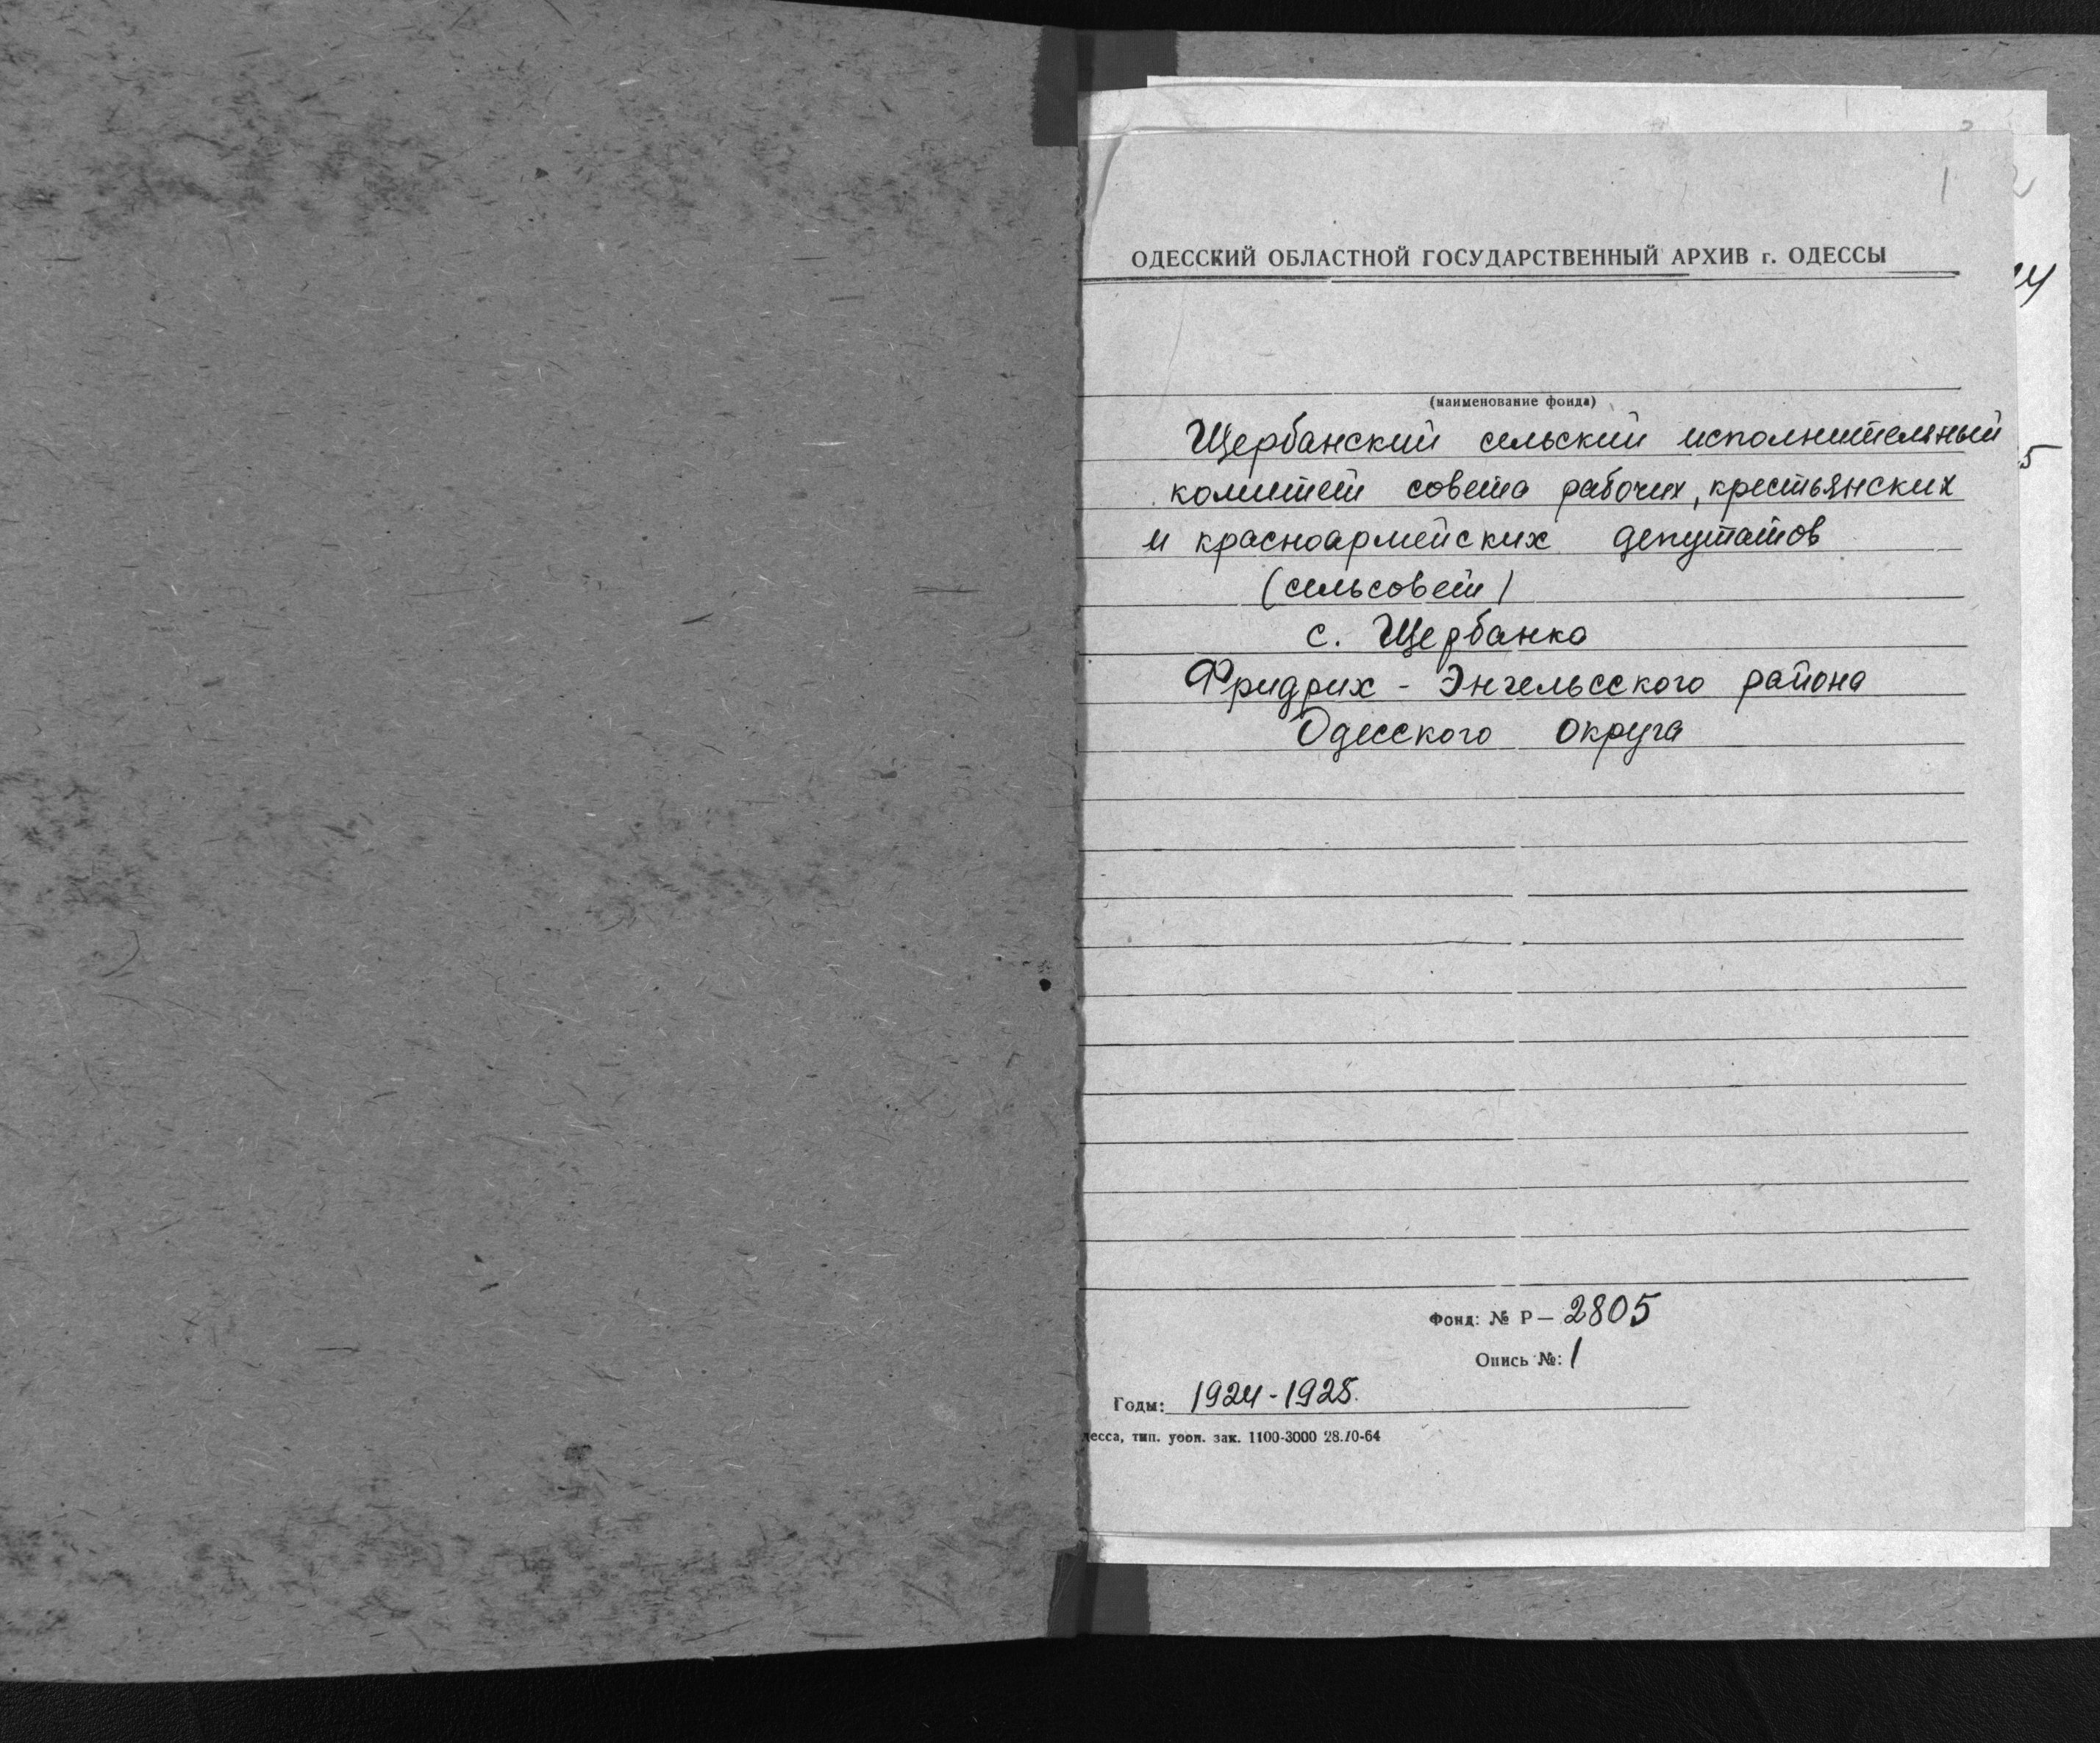 1
2
ОДЕССКИЙ ОБЛАСТНОЙ ГОСУДАРСТВЕННЫЙ АРХИВ г. ОДЕССЫ
(наименование фонда)
Щербанский сельский исполнительный
комитет совета рабочих, крестьянских
и красноармейских депутатов
(сельсовет)
с. Щербанка
Фридрих - Энгельсского района
Одесского округа
Фонд: № Р — 2805
Опись №: 1
Годы: 1924-1925.
десса, тип. уооп. зак. 1100-3000 28.10-64